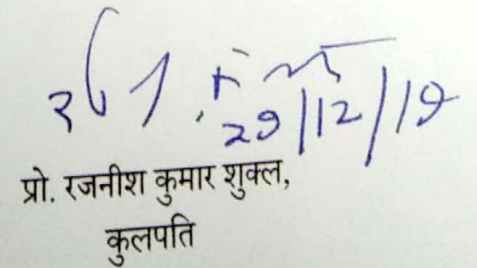 29/12/19
प्रो. रजनीश कुमार शुक्ल,
कुलपति